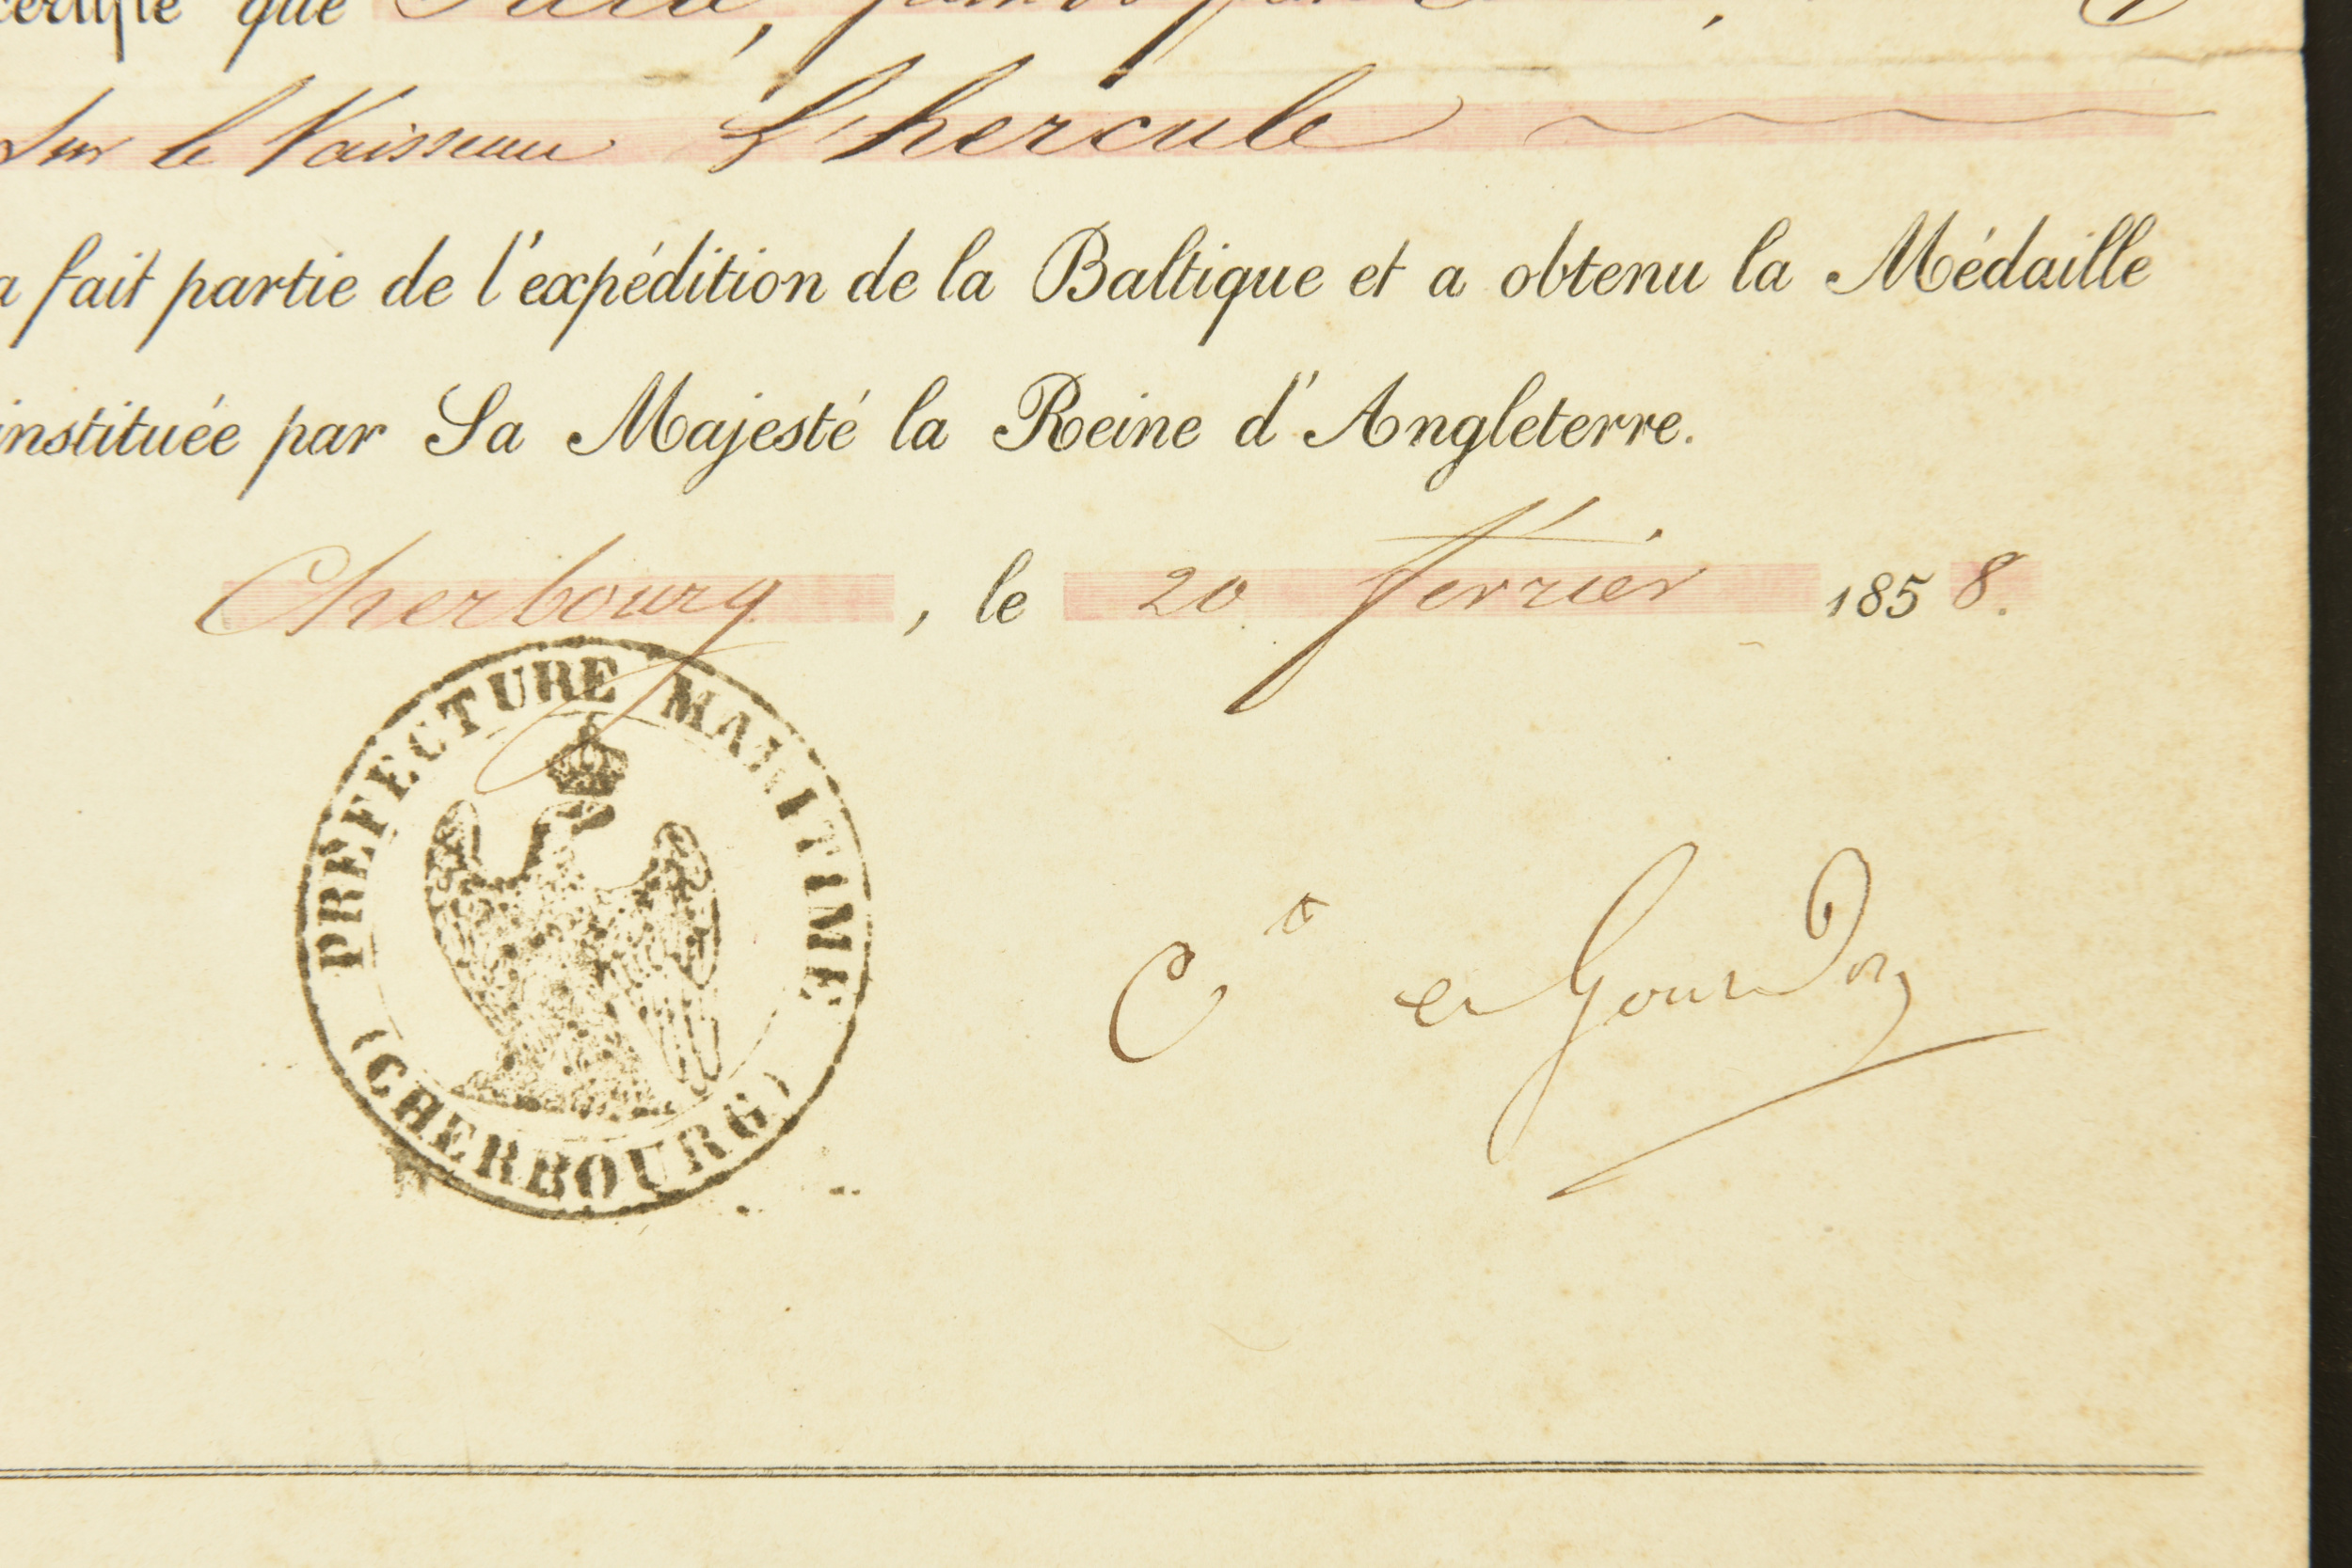 certifie que
Sur le Vaisseau L'hercule
a fait partie de l'expédition de la Baltique et a obtenu la Médaille
instituée par Sa Majesté la Reine d'Angleterre.
Cherbourg, le 20 fevrier 1858.
PRÉFECTURE MARITIME
(CHERBOURG)
Gourdon